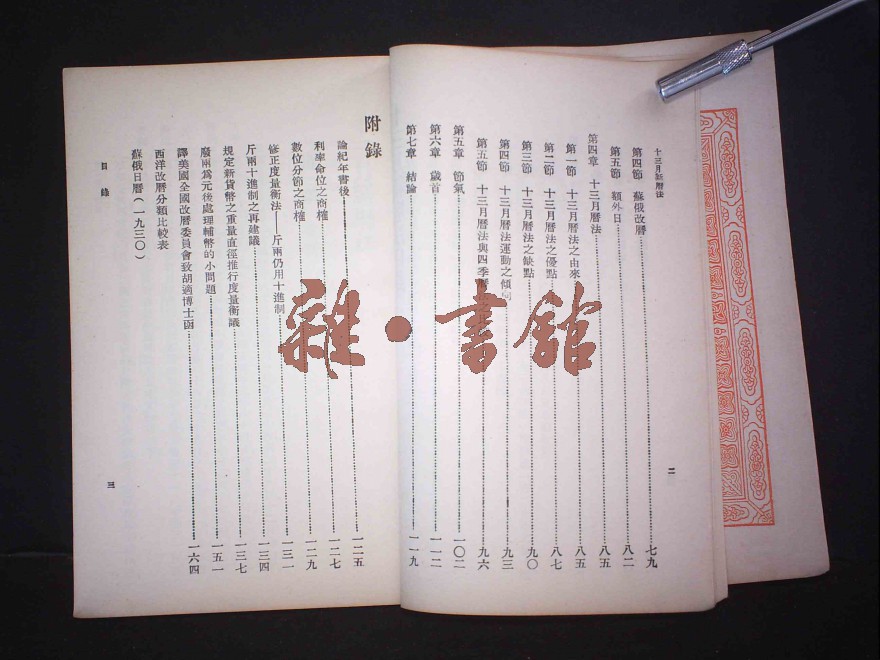 十三月新曆法
第四節 蘇俄改曆 七九
第五節 額外日 八二
第四章 十三月曆法 八五
第一節 十三月曆法之由來 八五
第二節 十三月曆法之優點 八七
第三節 十三月曆法之缺點 九〇
第四節 十三月曆法運動之傾向 九三
第五節 十三月曆法與四季曆 九六
第五章 節氣 一〇二
第六章 歲首 一一二
第七章 結論 一一九
二
附錄
論紀年書後 一二五
利率命位之商榷 一二七
數位分節之商榷 一二九
修正度量衡法——斤兩仍用十進制 一三一
斤兩十進制之再建議 一三四
規定新貨幣之重量直徑推行度量衡議 一三七
廢兩爲元後處理輔幣的小問題 一五一
譯美國全國改曆委員會致胡適博士函 一六四
西洋改曆分類比較表
蘇俄日曆(一九三〇)
目錄
三
雜·書館